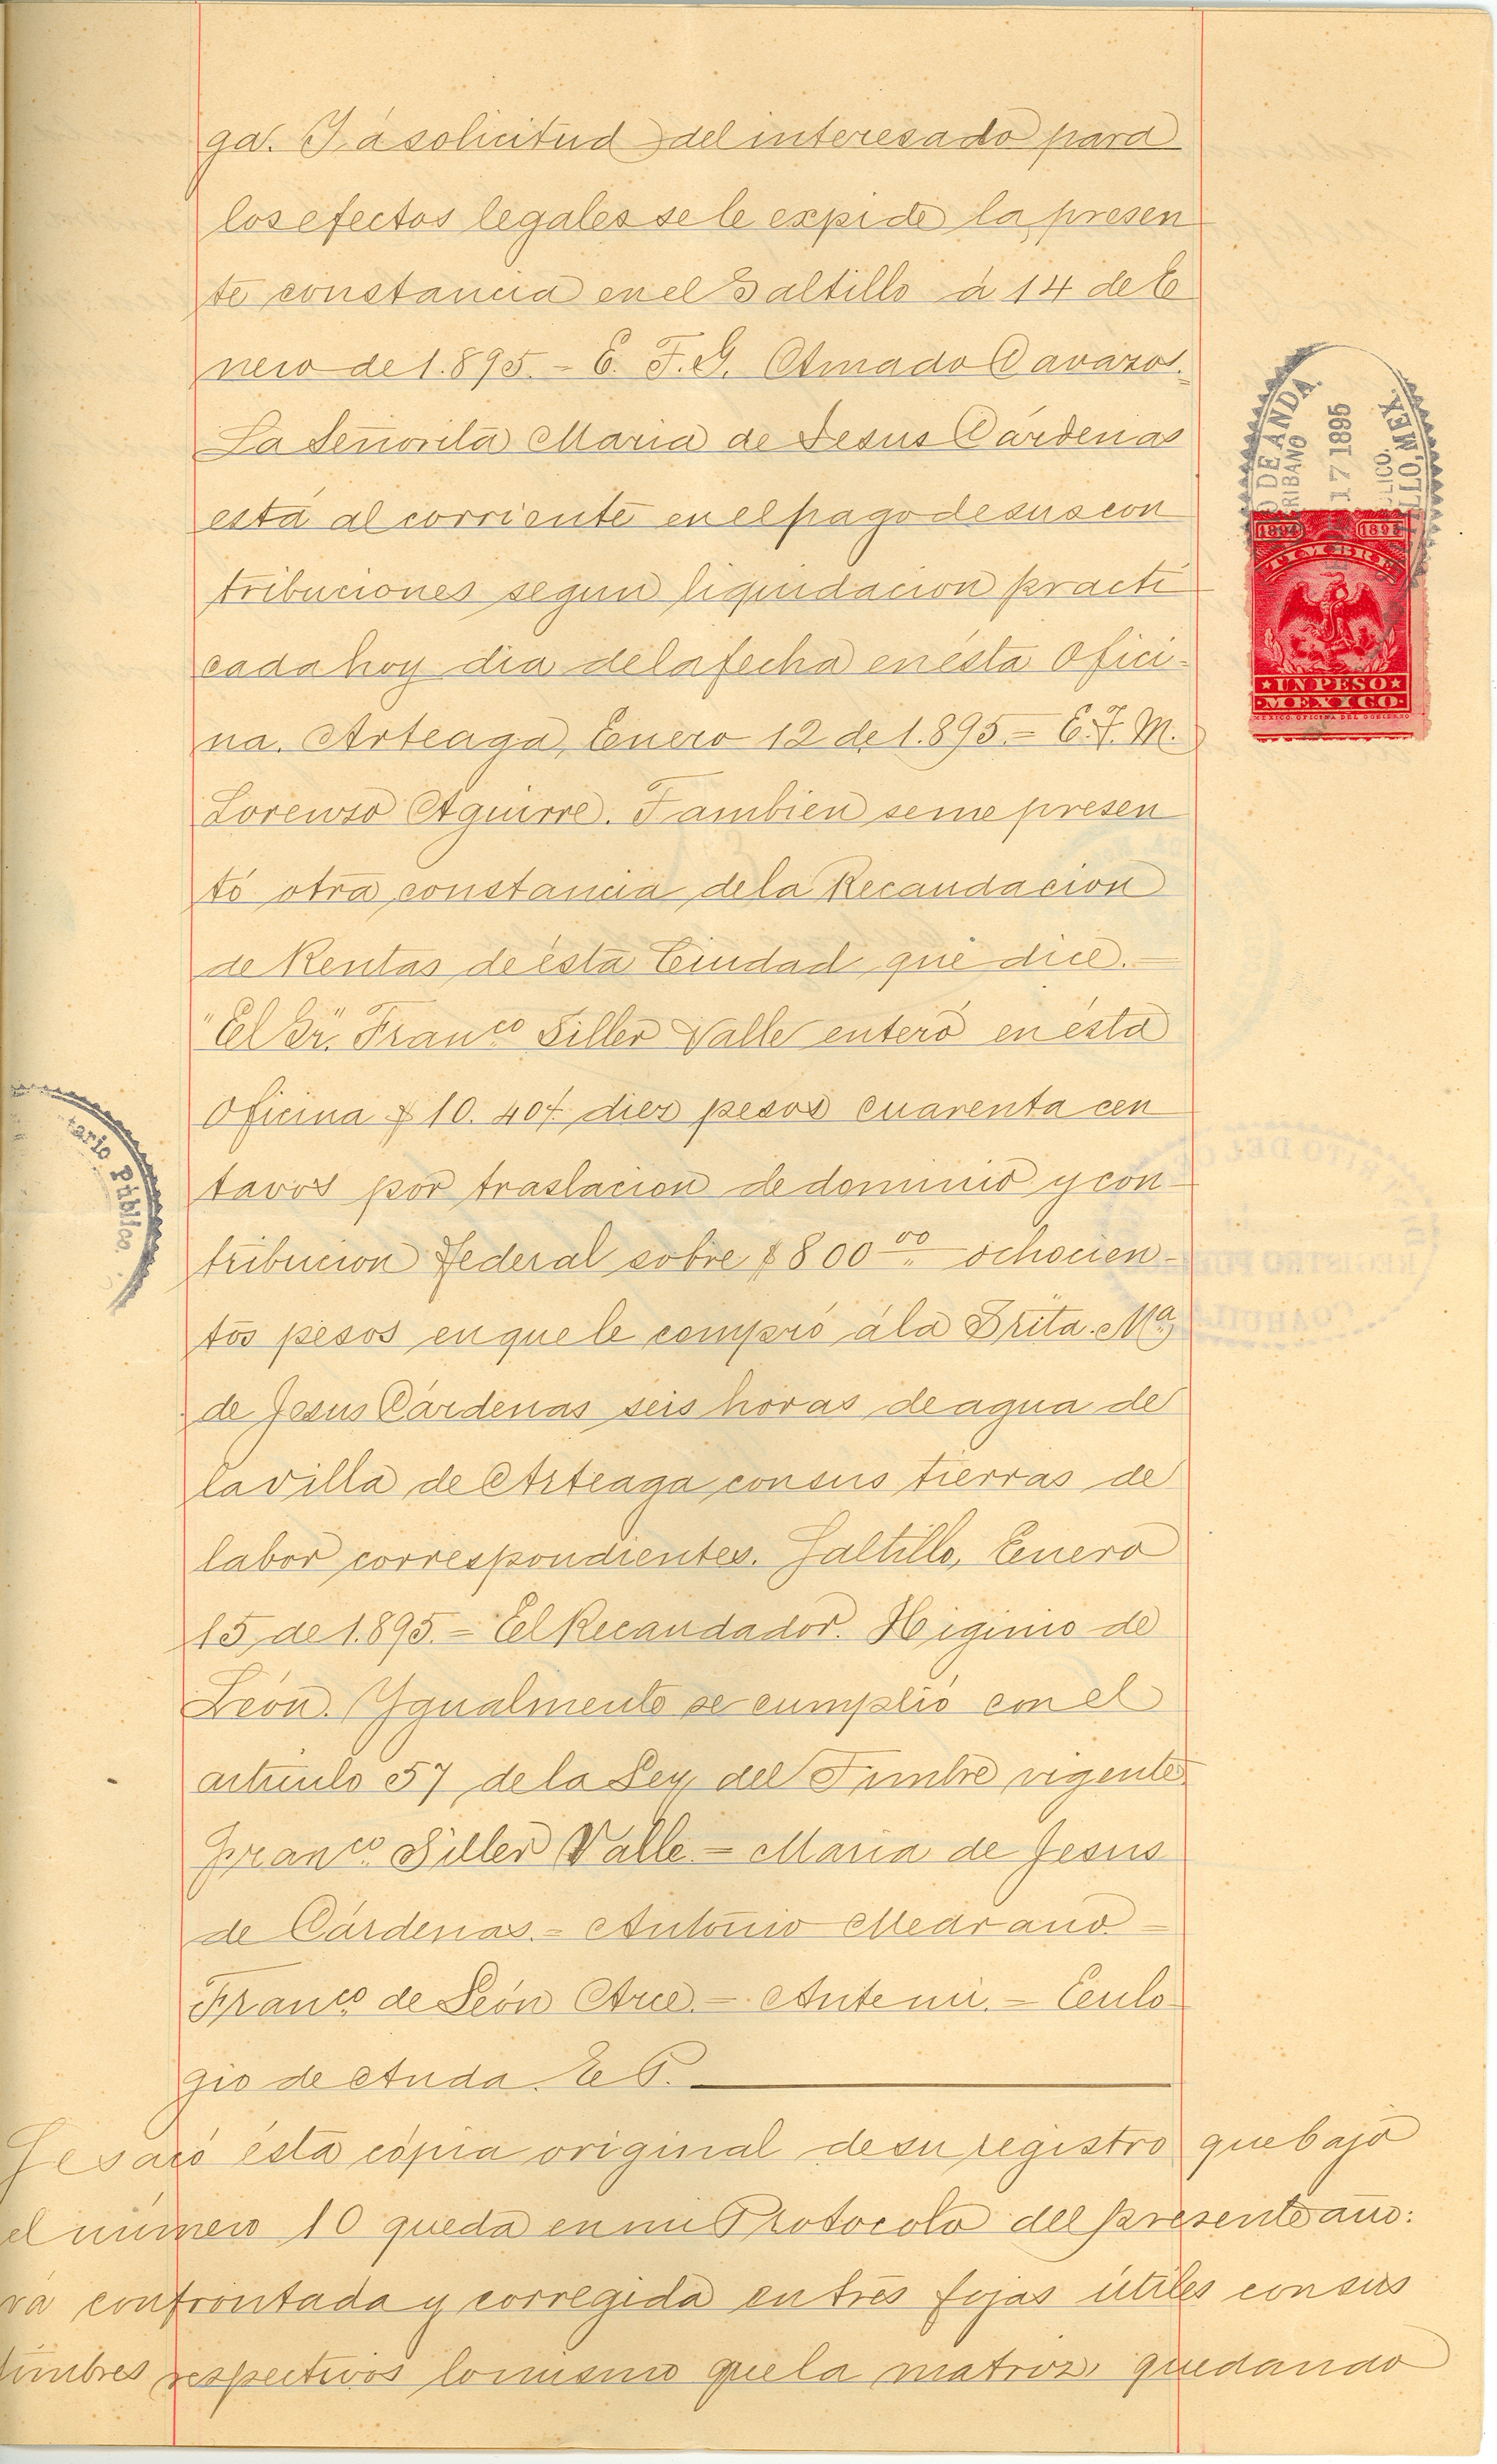 ga. Y á solicitud del interesado para
los efectos legales se le expide la presen
te constancia en el Saltillo á 14 de E
nero de 1.895. - E. F. G. Amado Cavazos.
La Señorita Maria de Jesus Cárdenas
está al corriente en el pago de sus con
tribuciones segun liquidacion practi
cada hoy dia de la fecha en ésta Ofici-
na. Arteaga, Enero 12 de 1.895. = E. F. M.
Lorenzo Aguirre. Tambien se me presen
tó otra constancia de la Recaudacion
de Rentas de ésta Ciudad que dice. —
"El Sr." Franco Siller Valle enteró en ésta
Oficina $10.40 diez pesos cuarenta cen
tavos por traslacion de dominio y con-
tribucion federal sobre $800 00 ochocien-
tos pesos en que le compró á la Srita. Ma
de Jesus Cárdenas seis horas de agua de
la villa de Arteaga con sus tierras de
labor correspondientes. Saltillo, Enero
15 de 1.895. = El Recaudador. Higinio de
León. Ygualmente se cumplió con el
artículo 57 de la Ley del Timbre vigente
Franco Siller Valle - Maria de Jesus
de Cárdenas. = Antonio Medrano. =
Franco de León Arce. - Ante mi. - Eulo
gio de Anda E P.
Se sacó ésta cópia original de su registro que bajo
el número 10 queda en mi Protocolo del presente año:
va confrontada y corregida en tres fojas útiles con sus
timbres respectivos lo mismo que la matriz, quedando
O DE ANDA
RIBANO
17 1895
LICO.
TILLO, MEX.
1894 1895
TIMBRE
UN PESO
MEXICO
MEXICO. OFICINA DEL GOBIERNO
tario Público
RITO DEL
REGISTRO PUB
COAHUIL